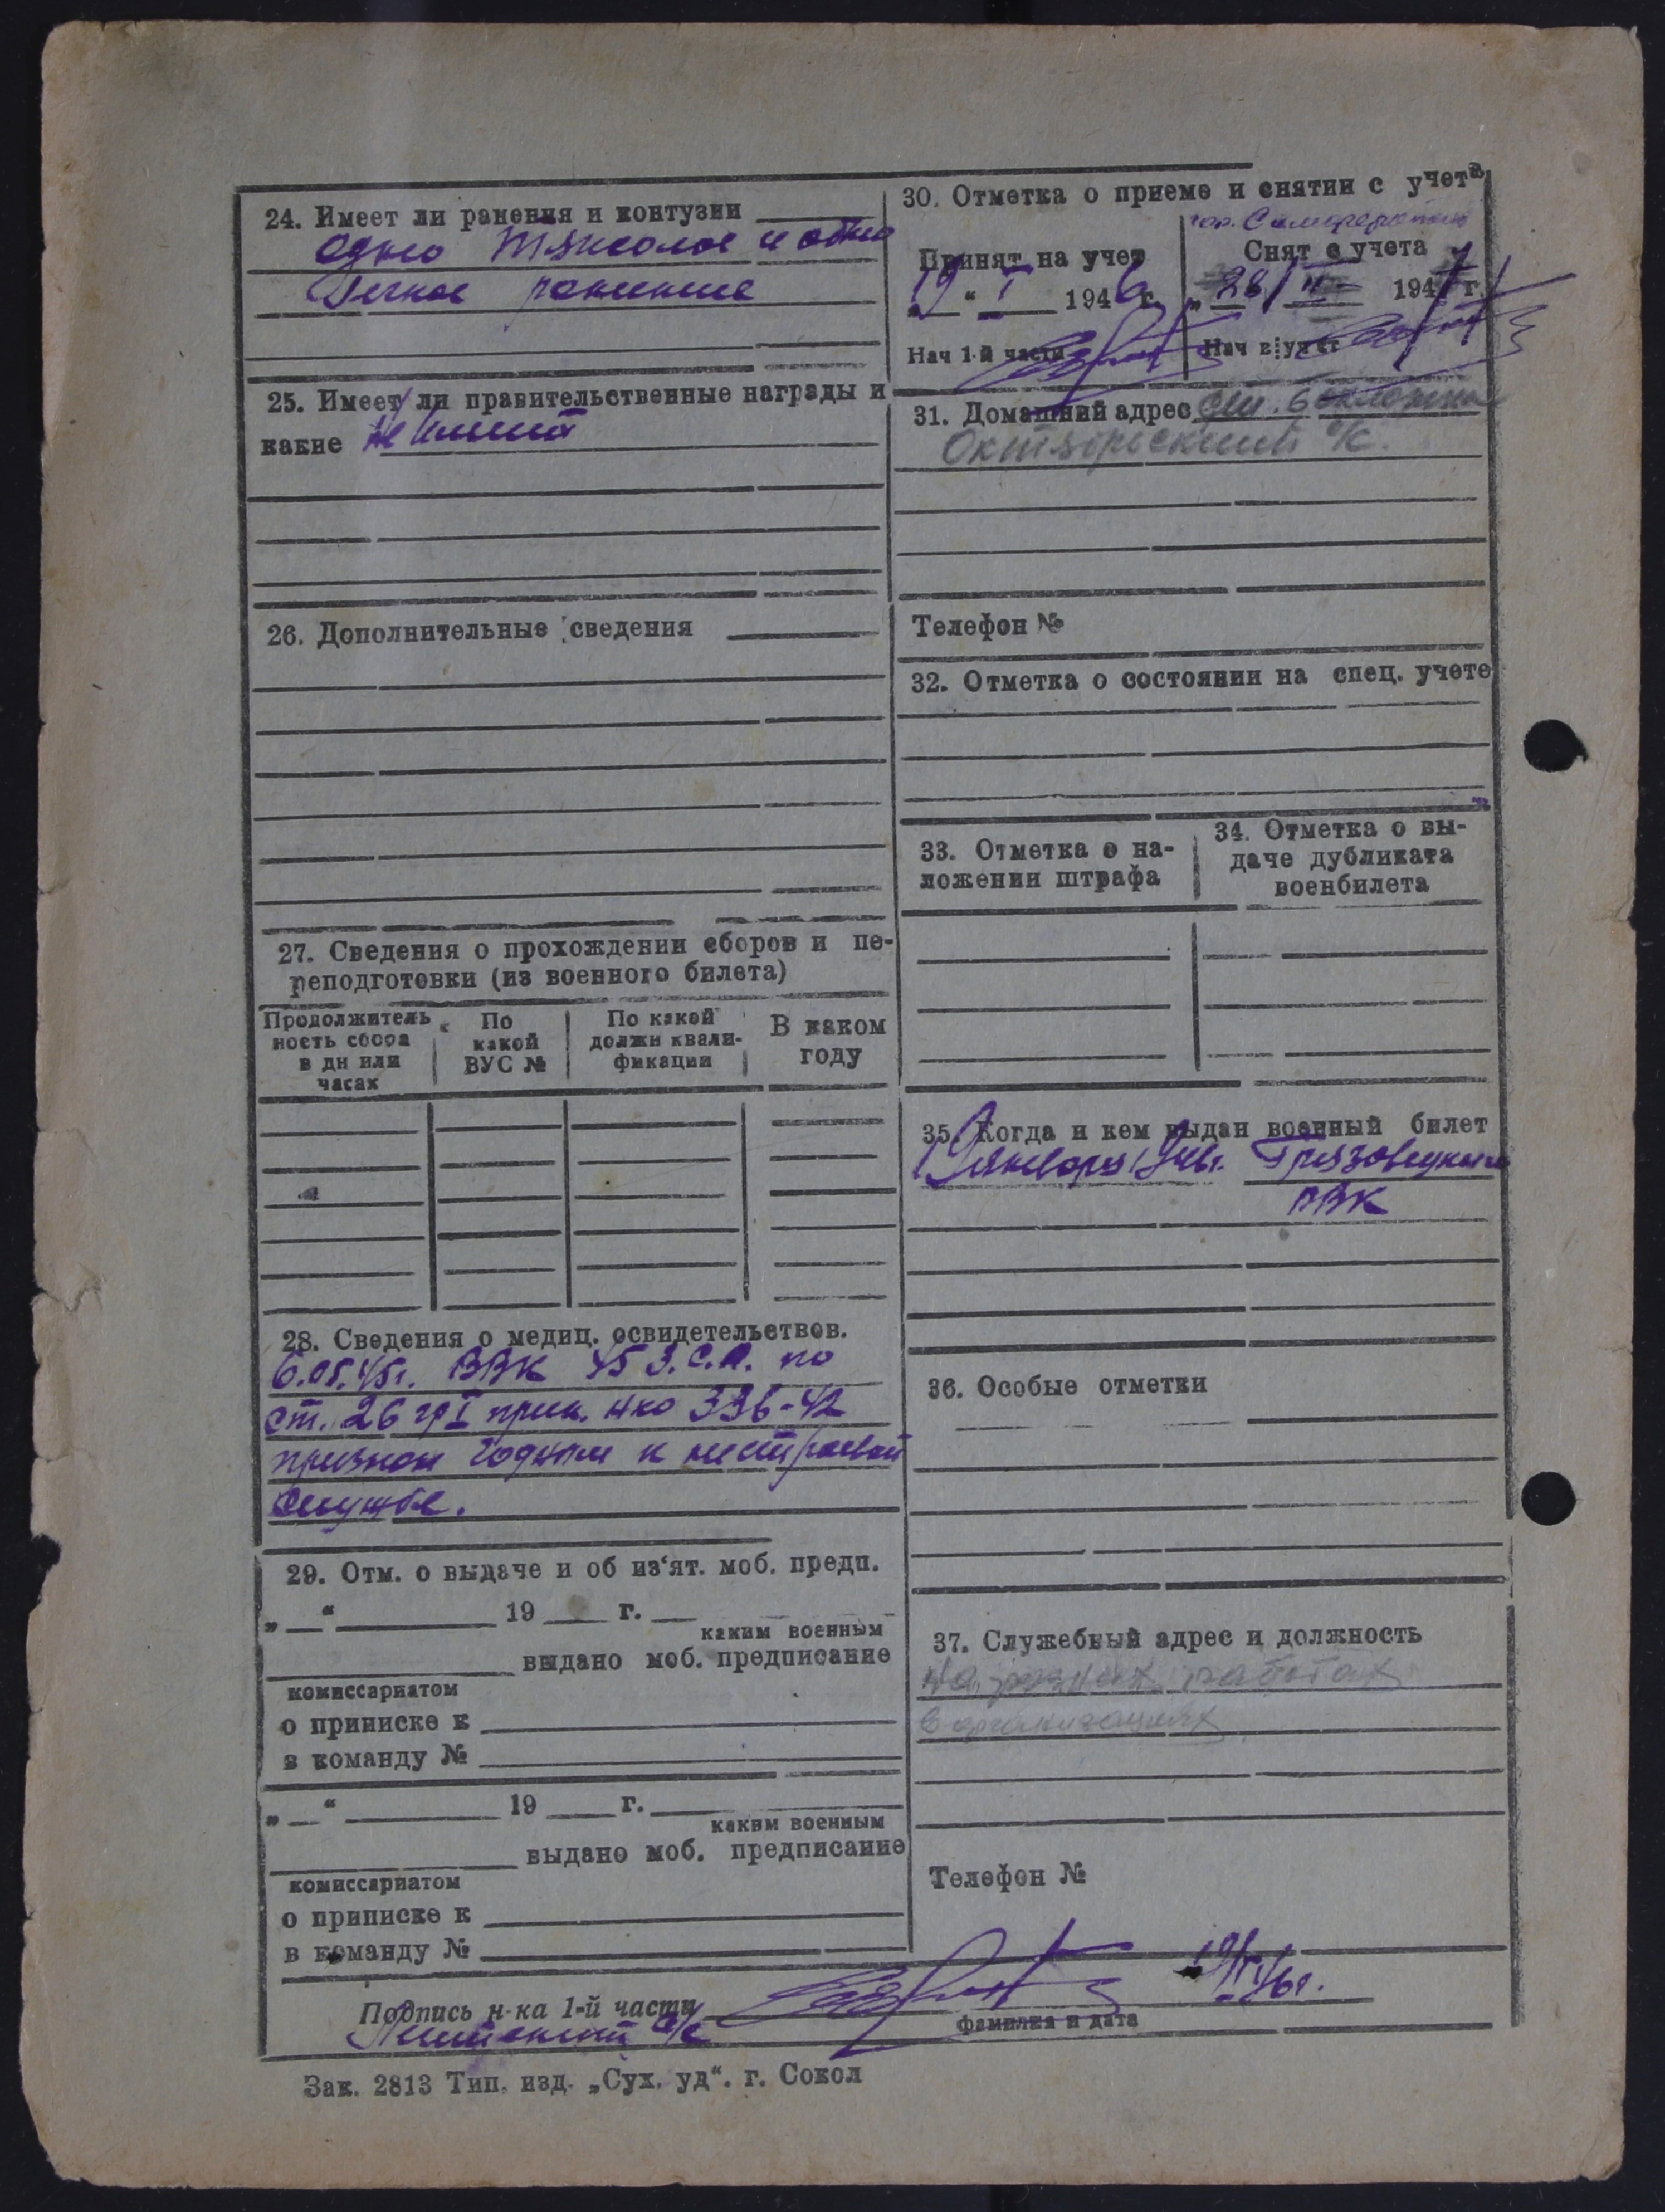 24. Имеет ли ранения и контузии
одно тяжолое и одно
Легкое ранение
25. Имеет ли правительственные награды и
какие не имеет
26. Дополнительные сведения
27. Сведения о прохождении сборов и пе-
реподготовки (из военного билета)
Продолжитель
ность сбора
в дн или
часах
По
какой
ВУС №
По какой
должн квали-
фикации
В каком
году
28. Сведения о медиц. освидетельствов.
6.05.45г. ВВК 45 З.С.П. по
ст. 26 гр I прик. нко 336-42
признан годным к нестроевой
службе.
29. Отм. о выдаче и об из‘ят. моб. предп.
„ “ 19 г.
каким военным
выдано моб. предписание
комиссариатом
о приписке к
в команду №
„ “ 19 г.
каким военным
выдано моб. предписание
комиссариатом
о приписке к
в команду №
30. Отметка о приеме и снятии с учета
гор.
Принят на учет
„19“ I 1946 г.
Нач 1-й части
Снят с учета
„28/ II 1947 г.
Нач в уч ст
31. Домашний адрес ст.
Октябрьский с/с.
Телефон №
32. Отметка о состоянии на спец. учете
33. Отметка о на-
ложении штрафа
34. Отметка о вы-
даче дубликата
военбилета
35. Когда и кем выдан военный билет
19 января 1946г. Грязовецким
РВК
36. Особые отметки
37. Служебный адрес и должность
На разных работах
в организациях
Телефон №
Подпись н-ка 1-й части
19/I 46г.
фамилия и дата
с/с
Зак. 2813 Тип. изд. „Сух. уд“. г. Сокол